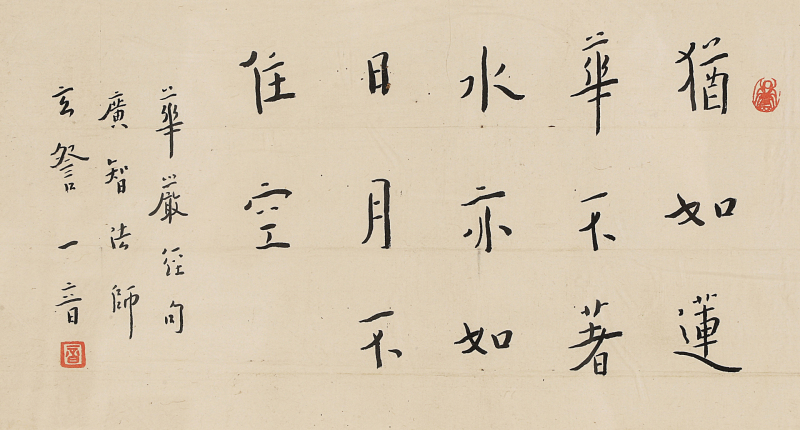 猶如蓮
華不著
水亦如
日月不
住空
華嚴經句
廣智法師
玄詧一音